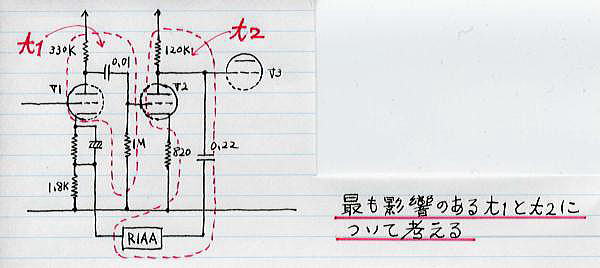 t1
t2
330K
0.01
120K
V1
V2
V3
1M
820
0.22
1.8K
RIAA
最も影響のあるt1とt2に
ついて考える